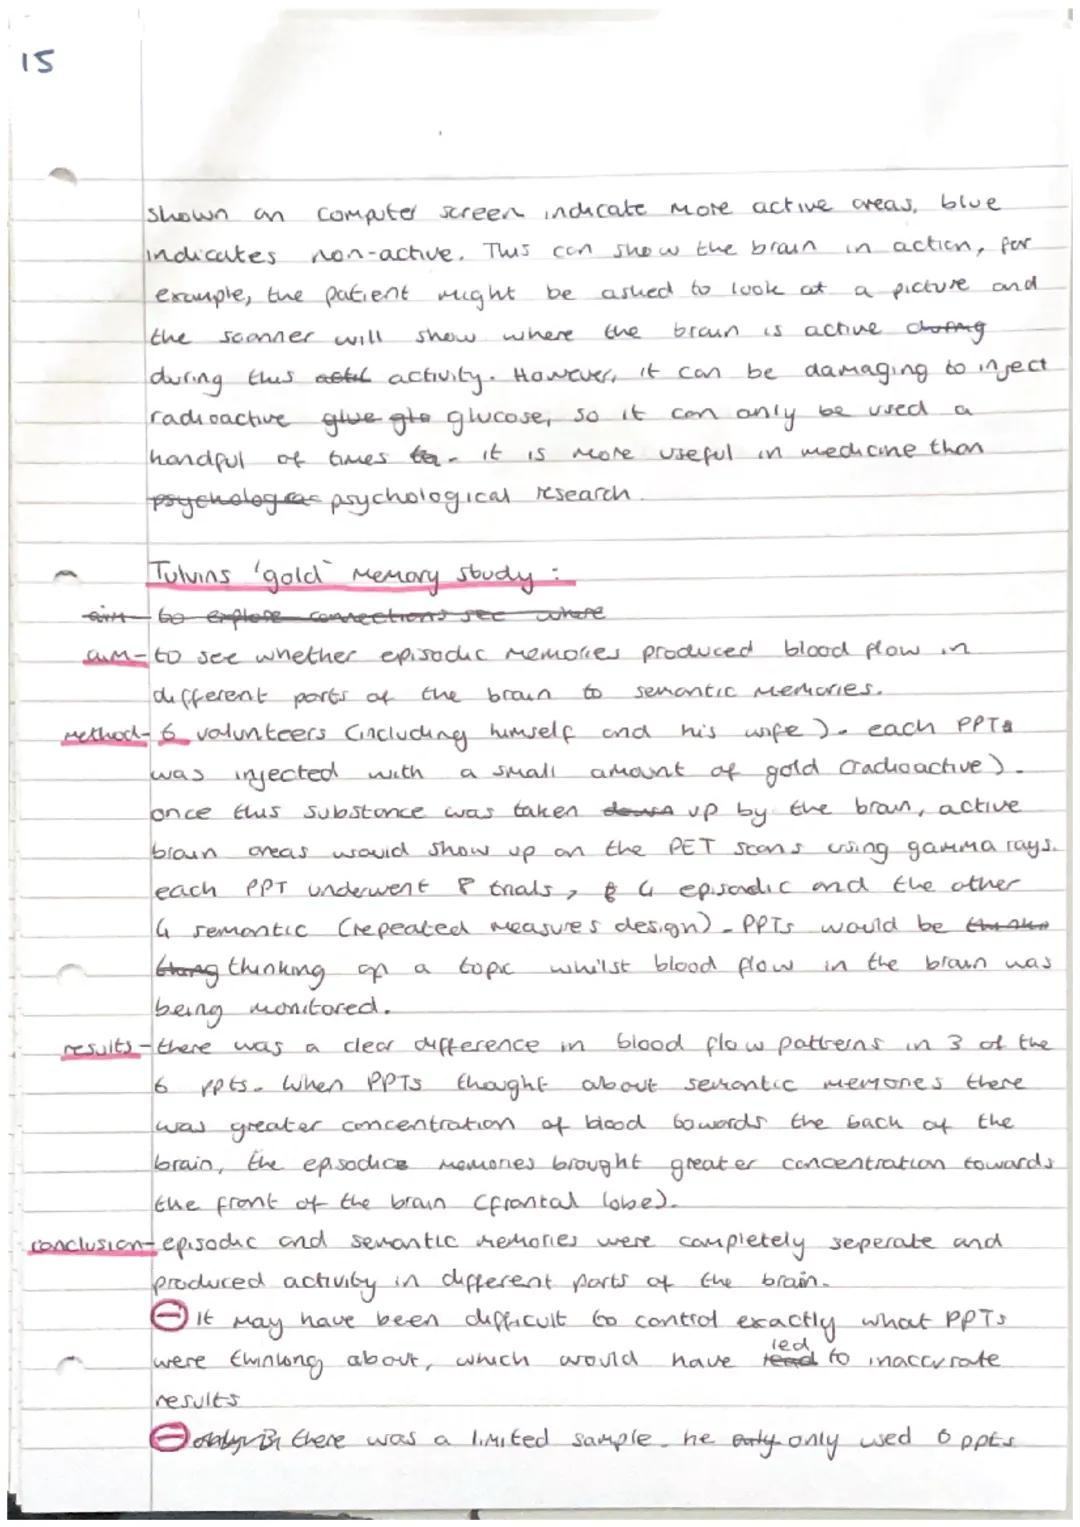 15
shown on computer screen indicate more active areas, blue
indicates non-active. This can show the brain in action, for
example, the patient might be asked to look at a picture and
the scanner will show where the brain is active during
during this activity. However, it can be damaging to inject
radioactive glue glucose, so it can only be used a
handful of times. it is more useful in medicine than
psychological research.
Tulvins 'gold' memory study:
aim to explore connections see where
aim-to see whether episodic memories produced blood flow in
different parts of the brain to semantic memories.
method- 6 volunteers (including himself and his wife). each PPT
was injected with a small amount of gold (radioactive).
once this substance was taken down up by the brain, active
brain areas would show up on the PET scans using gamma rays.
each PPT underwent 8 trials, 4 episodic and the other
4 semantic (repeated measures design). PPTs would be
thinking on a topic whilst blood flow in the brain was
being monitored.
results-there was a clear difference in blood flow patterns in 3 of the
6 ppts. When PPTs thought about semantic memories there
was greater concentration of blood towards the back of the
brain, the episodic memories brought greater concentration towards
the front of the brain (frontal lobe).
conclusion-episodic and semantic memories were completely seperate and
produced activity in different parts of the brain.
- It may have been difficult to control exactly what PPTs
were thinking about, which would have led to inaccurate
results
- there was a limited sample. he only used 6 ppts